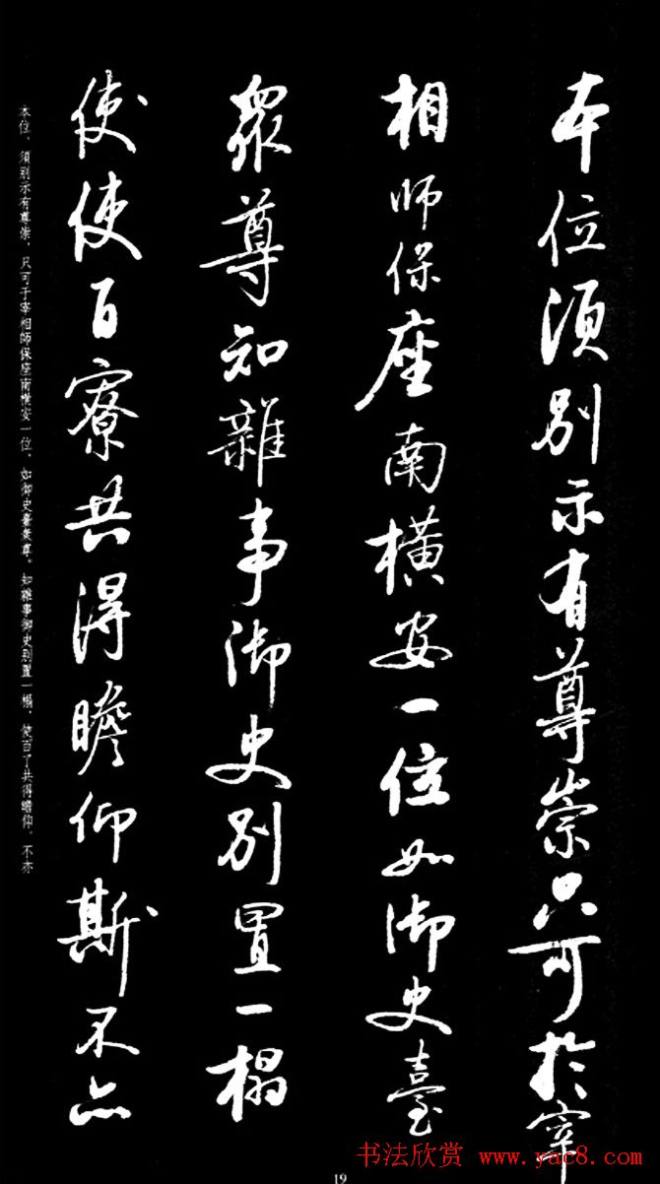 本位須別示有尊崇只可於宰
相師保座南橫安一位如御史臺
眾尊知雜事御史別置一榻
使使百寮共得瞻仰斯不亦
本位、須別示有尊崇，只可于宰相師保座南橫安一位，如御史臺眾尊。知雜事御史別置一榻，使百寮共得瞻仰，不亦
19
书法欣赏 www.yac8.com